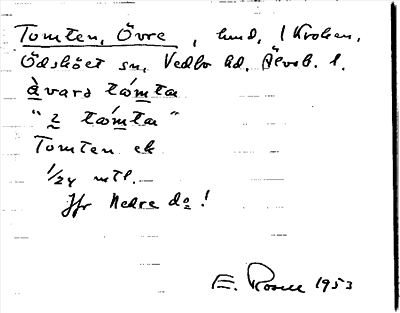 Tomten, Övre, hmd, / Kroken,
Ödskölt sn, Vedbo hd, Älvsb. l.
àvarə támta
"2 támta"
Tomten ek
1/24 mtl.
Jfr Nedre do!
E. Rosell 1953